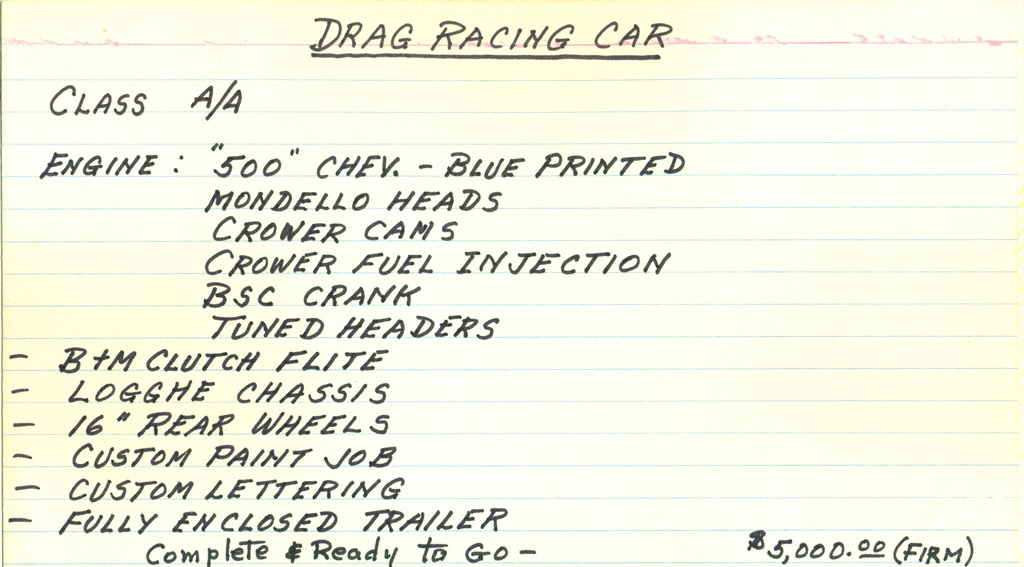 DRAG RACING CAR
CLASS A/A
ENGINE: "500" CHEV. - BLUE PRINTED
MONDELLO HEADS
CROWER CAMS
CROWER FUEL INJECTION
BSC CRANK
TUNED HEADERS
- B+M CLUTCH FLITE
- LOGGHE CHASSIS
- 16" REAR WHEELS
- CUSTOM PAINT JOB
- CUSTOM LETTERING
- FULLY ENCLOSED TRAILER
Complete & Ready to Go - $5,000.00 (FIRM)